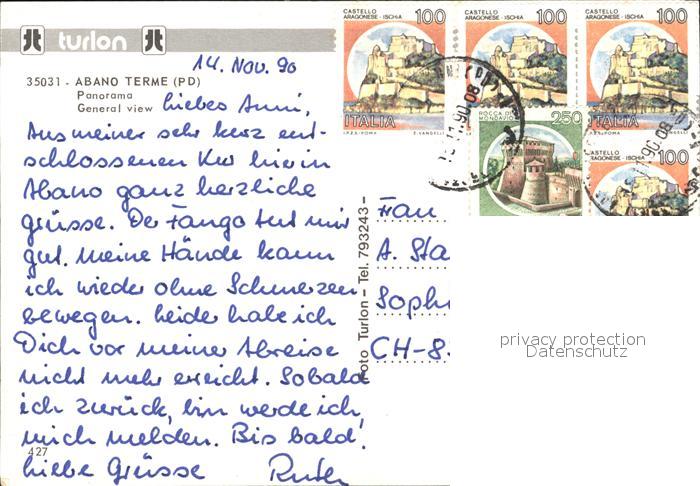 turlon
14. Nov. 90
35031 - ABANO TERME (PD)
Panorama
General view
Liebes Anni,
Aus meiner sehr kurz ent-
schlossenen Kur hier in
Abano ganz herzliche
Grüsse. Der Fango tut mir
gut. Meine Hände kann
ich wieder ohne Schmerzen
bewegen. Leider habe ich
Dich vor meiner Abreise
nicht mehr erreicht. Sobald
ich zurück bin werde ich
mich melden. Bis bald!
Liebe Grüsse Ruth
427
Foto Turlon - Tel. 793243 -
CASTELLO ARAGONESE - ISCHIA 100
ITALIA
I.P.Z.S. - ROMA E. VANGELLI
CASTELLO ARAGONESE - ISCHIA 100
CASTELLO ARAGONESE - ISCHIA 100
ITALIA
I.P.Z.S. - ROMA
ROCCA DI 250
CASTELLO ARAGONESE - ISCHIA 100
11.90.08
Frau
A. Sta
Soph
CH-8
privacy protection
Datenschutz